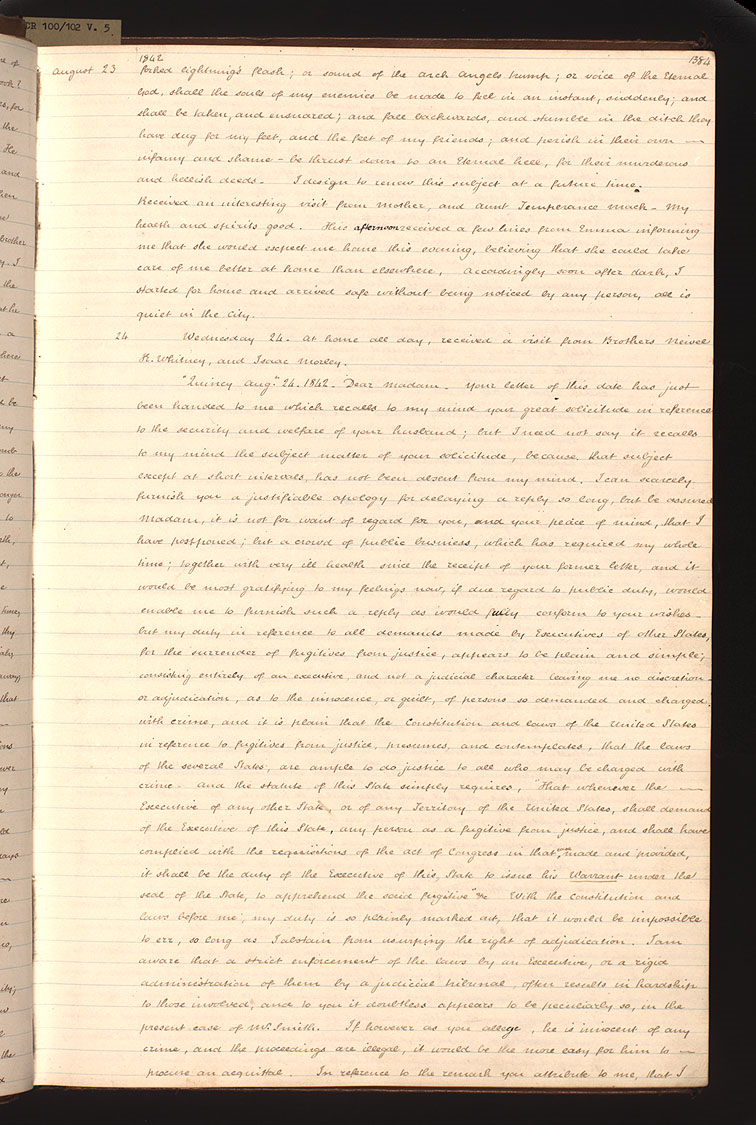 CR 100/102 V. 5
1842
1384
August 23 forked lightning's flash; or sound of the arch angels trump; or voice of the Eternal
God, shall the souls of my enemies be made to feel in an instant, suddenly; and
shall be taken, and ensnared; and fall backwards, and stumble in the ditch they
have dug for my feet, and the feet of my friends; and perish in their own —
infamy and shame – be thrust down to an Eternal hell, for their murderous
and hellish deeds – I design to renew this subject at a future time.
Received an interesting visit from Mother, and aunt Temperance Mack – My
health and spirits good. This afternoon received a few lines from Emma informing
me that she would expect me home this evening, believing that she could take
care of me better at home than elsewhere, accordingly soon after dark, I
started for home and arrived safe without being noticed by any person, all is
quiet in the City.
24 Wednesday 24. At home all day, received a visit from Brothers Newel
K. Whitney, and Isaac Morley.
"Quincy Aug: 24. 1842 – Dear Madam – Your letter of this date has just
been handed to me which recalls to my mind your great solicitude in reference
to the security and welfare of your husband; but I need not say it recalls
to my mind the subject matter of your solicitude, because that subject
except at short intervals, has not been absent from my mind. I can scarcely
furnish you a justifiable apology for delaying a reply so long, but be assured
Madam, it is not for want of regard for you, and your peace of mind, that I
have postponed; but a crowd of public business, which has required my whole
time; together with very ill health since the receipt of your former letter, and it
would be most gratifying to my feelings now, if due regard to public duty, would
enable me to furnish such a reply as would fully conform to your wishes –
but my duty in reference to all demands made by Executives of other States,
for the surrender of fugitives from justice, appears to be plain and simple;
consisting entirely of an executive, and not a judicial character leaving me no discretion –
or adjudication, as to the innocence, or guilt, of persons so demanded and charged
with crime, and it is plain that the Constitution and laws of the United States
in reference to fugitives from justice, presumes, and contemplates, that the laws
of the several States, are ample to do justice to all who may be charged with
crime – and the statute of this State simply requires, "That whenever the —
Executive of any other State, or of any Territory of the United States, shall demand
of the Executive of this State, any person as a fugitive from justice, and shall have
complied with the requisitions of the act of Congress in that case made and provided,
it shall be the duty of the Executive of this State to issue his Warrant under the
seal of the State, to apprehend the said fugitive" &c With the Constitution and
laws before me, my duty is so plainly marked out, that it would be impossible
to err, so long as I abstain from usurping the right of adjudication. I am
aware that a strict enforcement of the laws by an Executive, or a rigid
administration of them by a judicial tribunal, often results in hardship
to those involved, and to you it doubtless appears to be peculiarly so, in the
present case of Mr. Smith. If however as you allege, he is innocent of any
crime, and the proceedings are illegal, it would be the more easy for him to —
procure an acquittal. In reference to the remark you attribute to me, that I